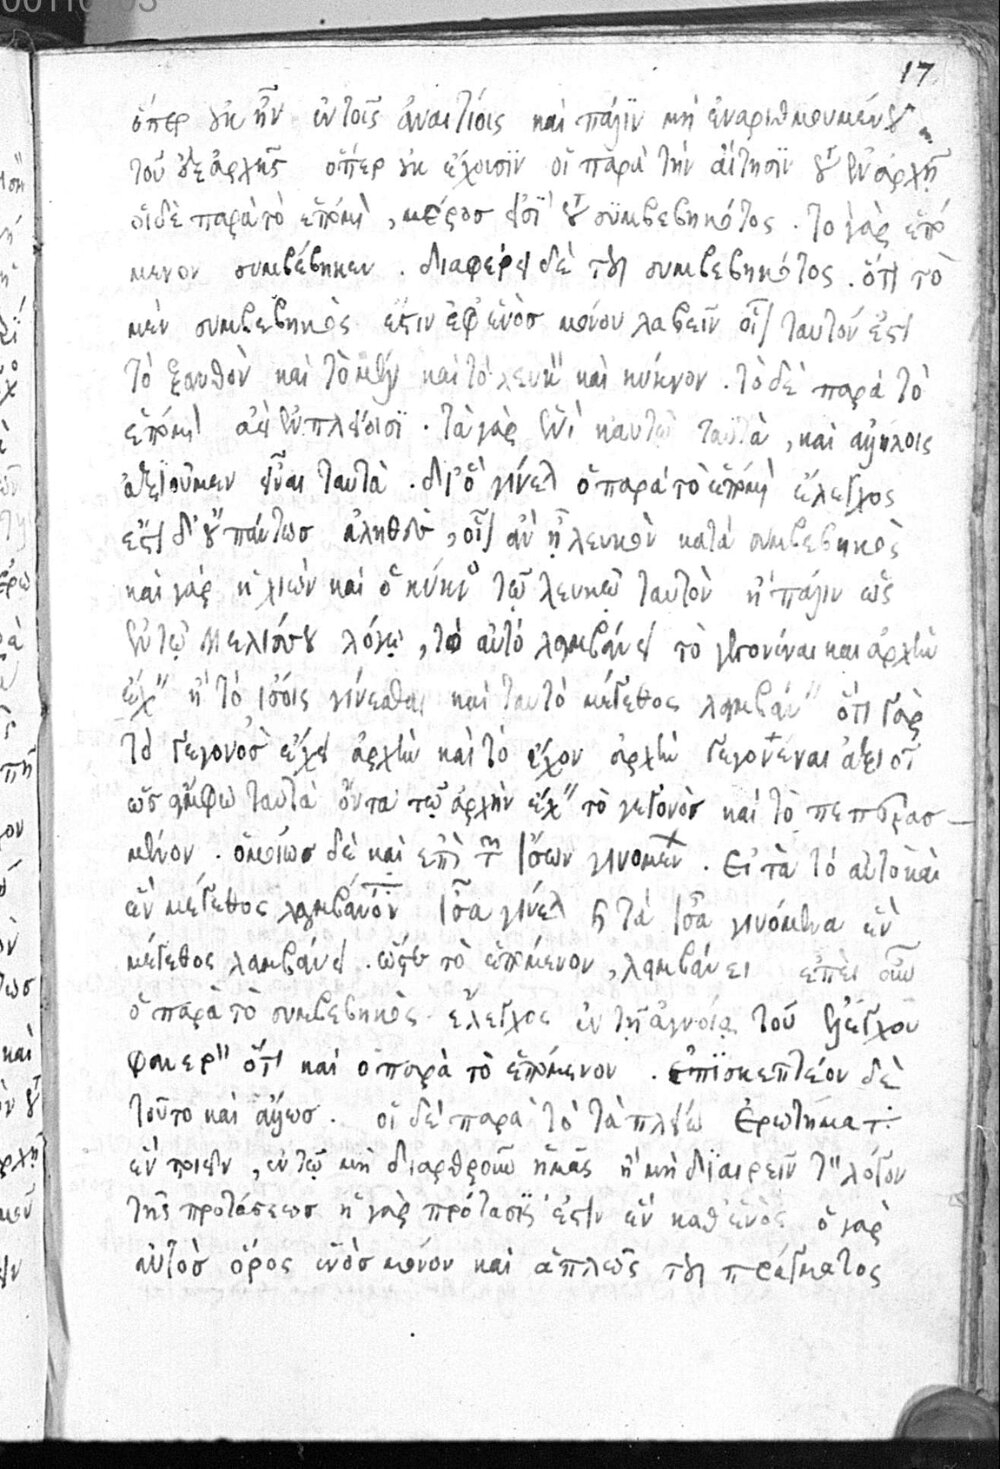 17
ὅπερ οὐκ ἦν ἐν τοῖς ἀναιτίοις καὶ πάλιν μὴ ἐναριθμουμένου
τοῦ ἐξ ἀρχῆς ὅπερ οὐκ ἔχουσιν οἱ παρὰ τὴν αἴτησιν τοῦ ἐν ἀρχῇ
οἱ δὲ παρὰ τὸ ἑπόμενον, μέρος εἰσὶ τοῦ συμβεβηκότος. τὸ γὰρ ἑπό
μενον συμβέβηκεν. διαφέρει δὲ τοῦ συμβεβηκότος. ὅτι τὸ
μὲν συμβεβηκὸς ἔστιν ἐφ' ἑνὸς μόνου λαβεῖν οἷον ταυτόν ἐστι
τὸ ξανθὸν καὶ τὸ μέλι καὶ τὸ λευκὸν καὶ κύκνον. τὸ δὲ παρὰ τὸ
ἑπόμενον ἀεὶ ἐν πλείοσι. τὰ γὰρ ἑνὶ καὶ ταυτῷ ταὐτὰ, καὶ ἀλλήλοις
ἀξιοῦμεν εἶναι ταὐτά. διὸ γίνεται ὁ παρὰ τὸ ἑπόμενον ἔλεγχος
ἔστι δ' οὐ πάντως ἀληθὲς, οἷον ἂν ᾖ λευκὸν κατὰ συμβεβηκὸς
καὶ γὰρ ἡ χιὼν καὶ ὁ κύκνος τῷ λευκῷ ταυτὸν ἢ πάλιν ὡς
ἐν τῷ Μελίσσου λόγῳ, τὸ αὐτὸ λαμβάνει τὸ γεγονέναι καὶ ἀρχὴν
ἔχειν ἢ τὸ ἴσοις γίνεσθαι καὶ ταυτὸ μέγεθος λαμβάνειν ὅτι γὰρ
τὸ γεγονὸς ἔχει ἀρχὴν καὶ τὸ ἔχον ἀρχὴν γεγονέναι ἀξιοῖ
ὡς ἄμφω ταὐτὰ ὄντα τῷ ἀρχὴν ἔχειν τὸ γεγονὸς καὶ τὸ πεπερασ
μένον. ὁμοίως δὲ καὶ ἐπὶ τῶν ἴσων γινομένων. εἰ τὰ τὸ αὐτὸ καὶ
ἓν μέγεθος λαμβάνοντα ἴσα γίνεται καὶ τὰ ἴσα γινόμενα ἓν
μέγεθος λαμβάνει. ὥστε τὸ ἑπόμενον, λαμβάνει ἐπεὶ οὖν
ὁ παρὰ τὸ συμβεβηκὸς ἔλεγχος ἐν τῇ ἀγνοίᾳ τοῦ ἐλέγχου
φανερὸν ὅτι καὶ ὁ παρὰ τὸ ἑπόμενον. ἐπισκεπτέον δὲ
τοῦτο καὶ ἄλλως. οἱ δὲ παρὰ τὸ τὰ πλείω ἐρωτήματα
ἓν ποιεῖν, ἐν τῷ μὴ διαρθροῦν ἡμᾶς ἢ μὴ διαιρεῖν τὸν λόγον
τῆς προτάσεως ἡ γὰρ πρότασίς ἐστιν ἓν καθ' ἑνὸς ὁ γὰρ
αὐτὸς ὅρος ἑνὸς μόνον καὶ ἁπλῶς τοῦ πράγματος